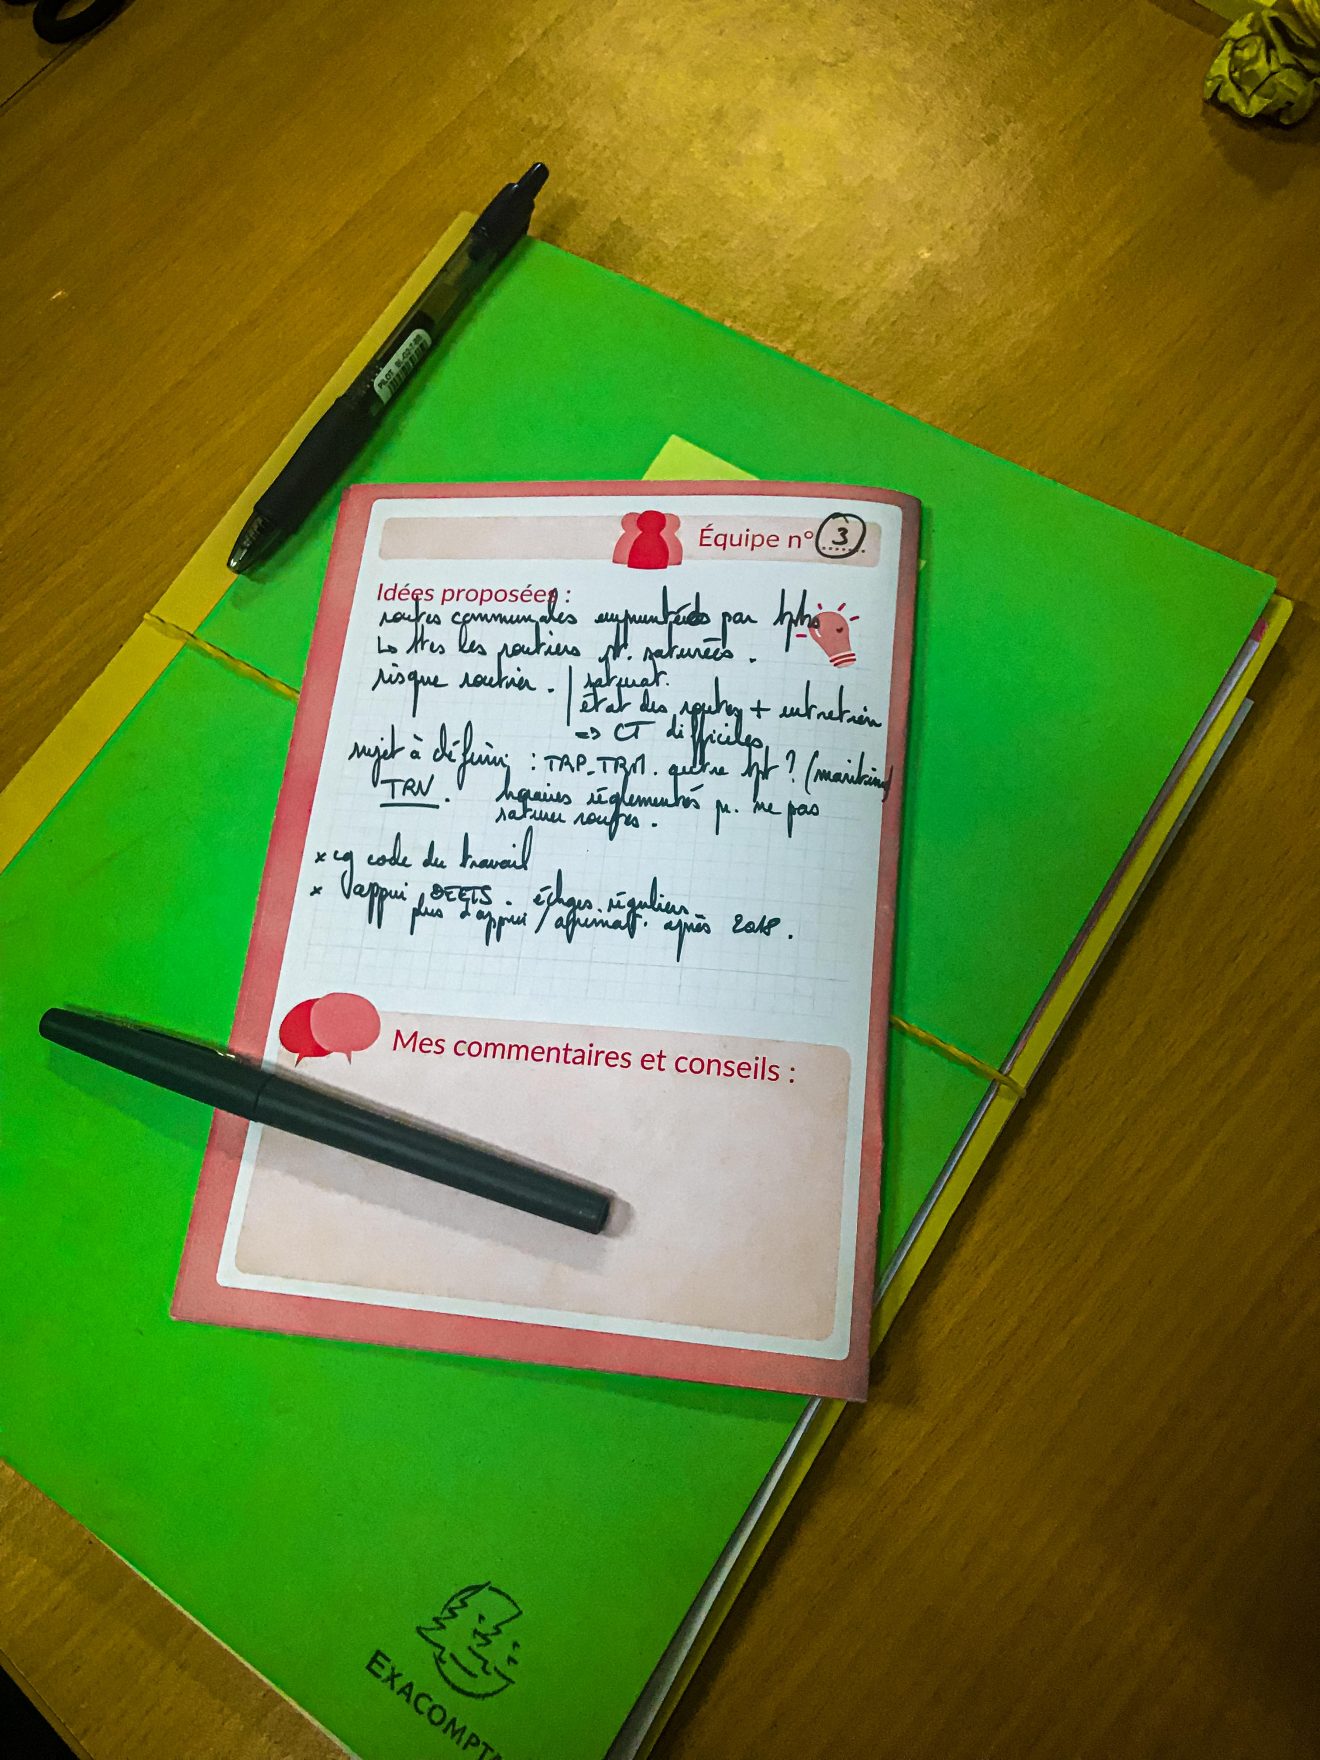 PILOT BL-G2-7
Équipe n° 3
Idées proposées :
routes communales empruntées par
les routiers st. saturées.
risque routier. | saturat.
état des routes + entretien
=> CT difficiles
sujet à définir : TRP_TRM. autre tpt ? (maritime)
TRV. horaires réglementés pr. ne pas
saturer routes.
x cg code du travail
x appui DEETS. échges réguliers
plus d'appui / après 2018.
Mes commentaires et conseils :
EXACOMPTA